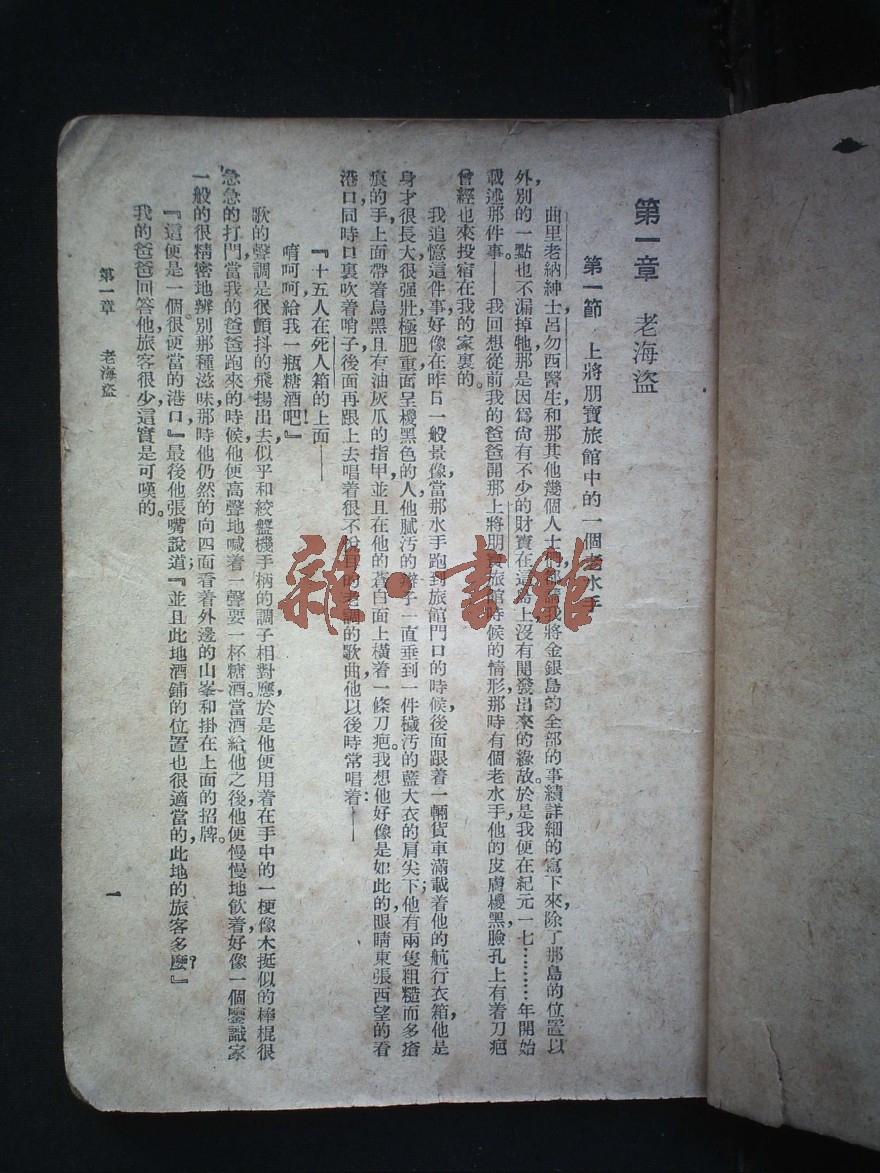 第一章　老海盜
第一節　上將朋寶旅館中的一個老水手
曲里老納紳士，呂勿西醫生和那其他幾個人士，我將金銀島的全部的事績詳細的寫下來，除了那島的位置以
外，別的一點也不漏掉牠，那是因爲尙有不少的財寶在這島上沒有開發出來的緣故。於是我便在紀元一七………年開始
載述那件事。——我回想從前我的爸爸開那上將朋寶旅館時候的情形，那時有個老水手，他的皮膚㯭黑，臉孔上有着刀疤，
曾經也來投宿在我的家裏的。
我追憶這件事，好像在昨日一般，景像當那水手跑到旅館門口的時候，後面跟着一輛貨車滿載着他的航行衣箱；他是
身才很長大，很强壯，極肥重，面呈㯭黑色的人，他膩汚的辮子一直垂到一件穢汚的藍大衣的肩尖下，他有兩隻粗糙而多瘡
痕的手，上面帶着烏黑且有油灰爪的指甲，並且在他的蒼白面上橫着一條刀疤。我想他好像是如此的，眼睛東張西望的看
港口，同時口裏吹着哨子，後面再跟上去唱着很不悅耳的老調的歌曲，他以後時常唱着：——
『十五人在死人箱的上面——
唷呵呵，給我一瓶糖酒吧！』
歌的聲調是很顫抖的飛揚出去，似乎和絞盤機手柄的調子相對應，於是他便用着在手中的一梗像木挺似的棒棍很
急急的打門，當我的爸爸跑來的時候，他便高聲地喊着一聲要一杯糖酒。當酒給他之後，他便慢慢地飲着，好像一個鑒識家
一般的很精密地辨別那種滋味，那時他仍然的向四面看着外邊的山峯和掛在上面的招牌。
『這便是一個很便當的港口，』最後他張嘴說道；『並且此地酒鋪的位置也很適當的，此地的旅客多麼？』
我的爸爸回答他，旅客很少，這實是可嘆的。
第一章　老海盜
一
雜·書館